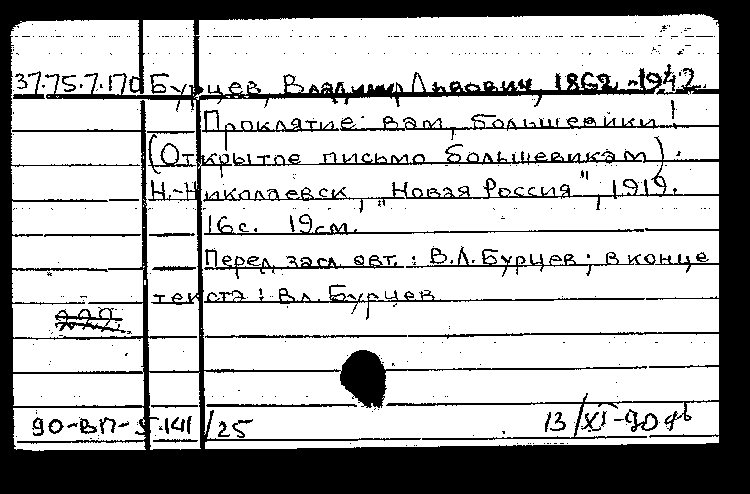 37.75.7.170 Бурцев, Владимир Львович, 1862-1942.
Проклятие вам, большевики!
(Открытое письмо большевикам).
Н.-Николаевск, "Новая Россия", 1919.
16с. 19см.
Перед загл. авт.: В.Л.Бурцев; в конце
текста: Вл. Бурцев
90-ВП-5.141/25 13/XI-90